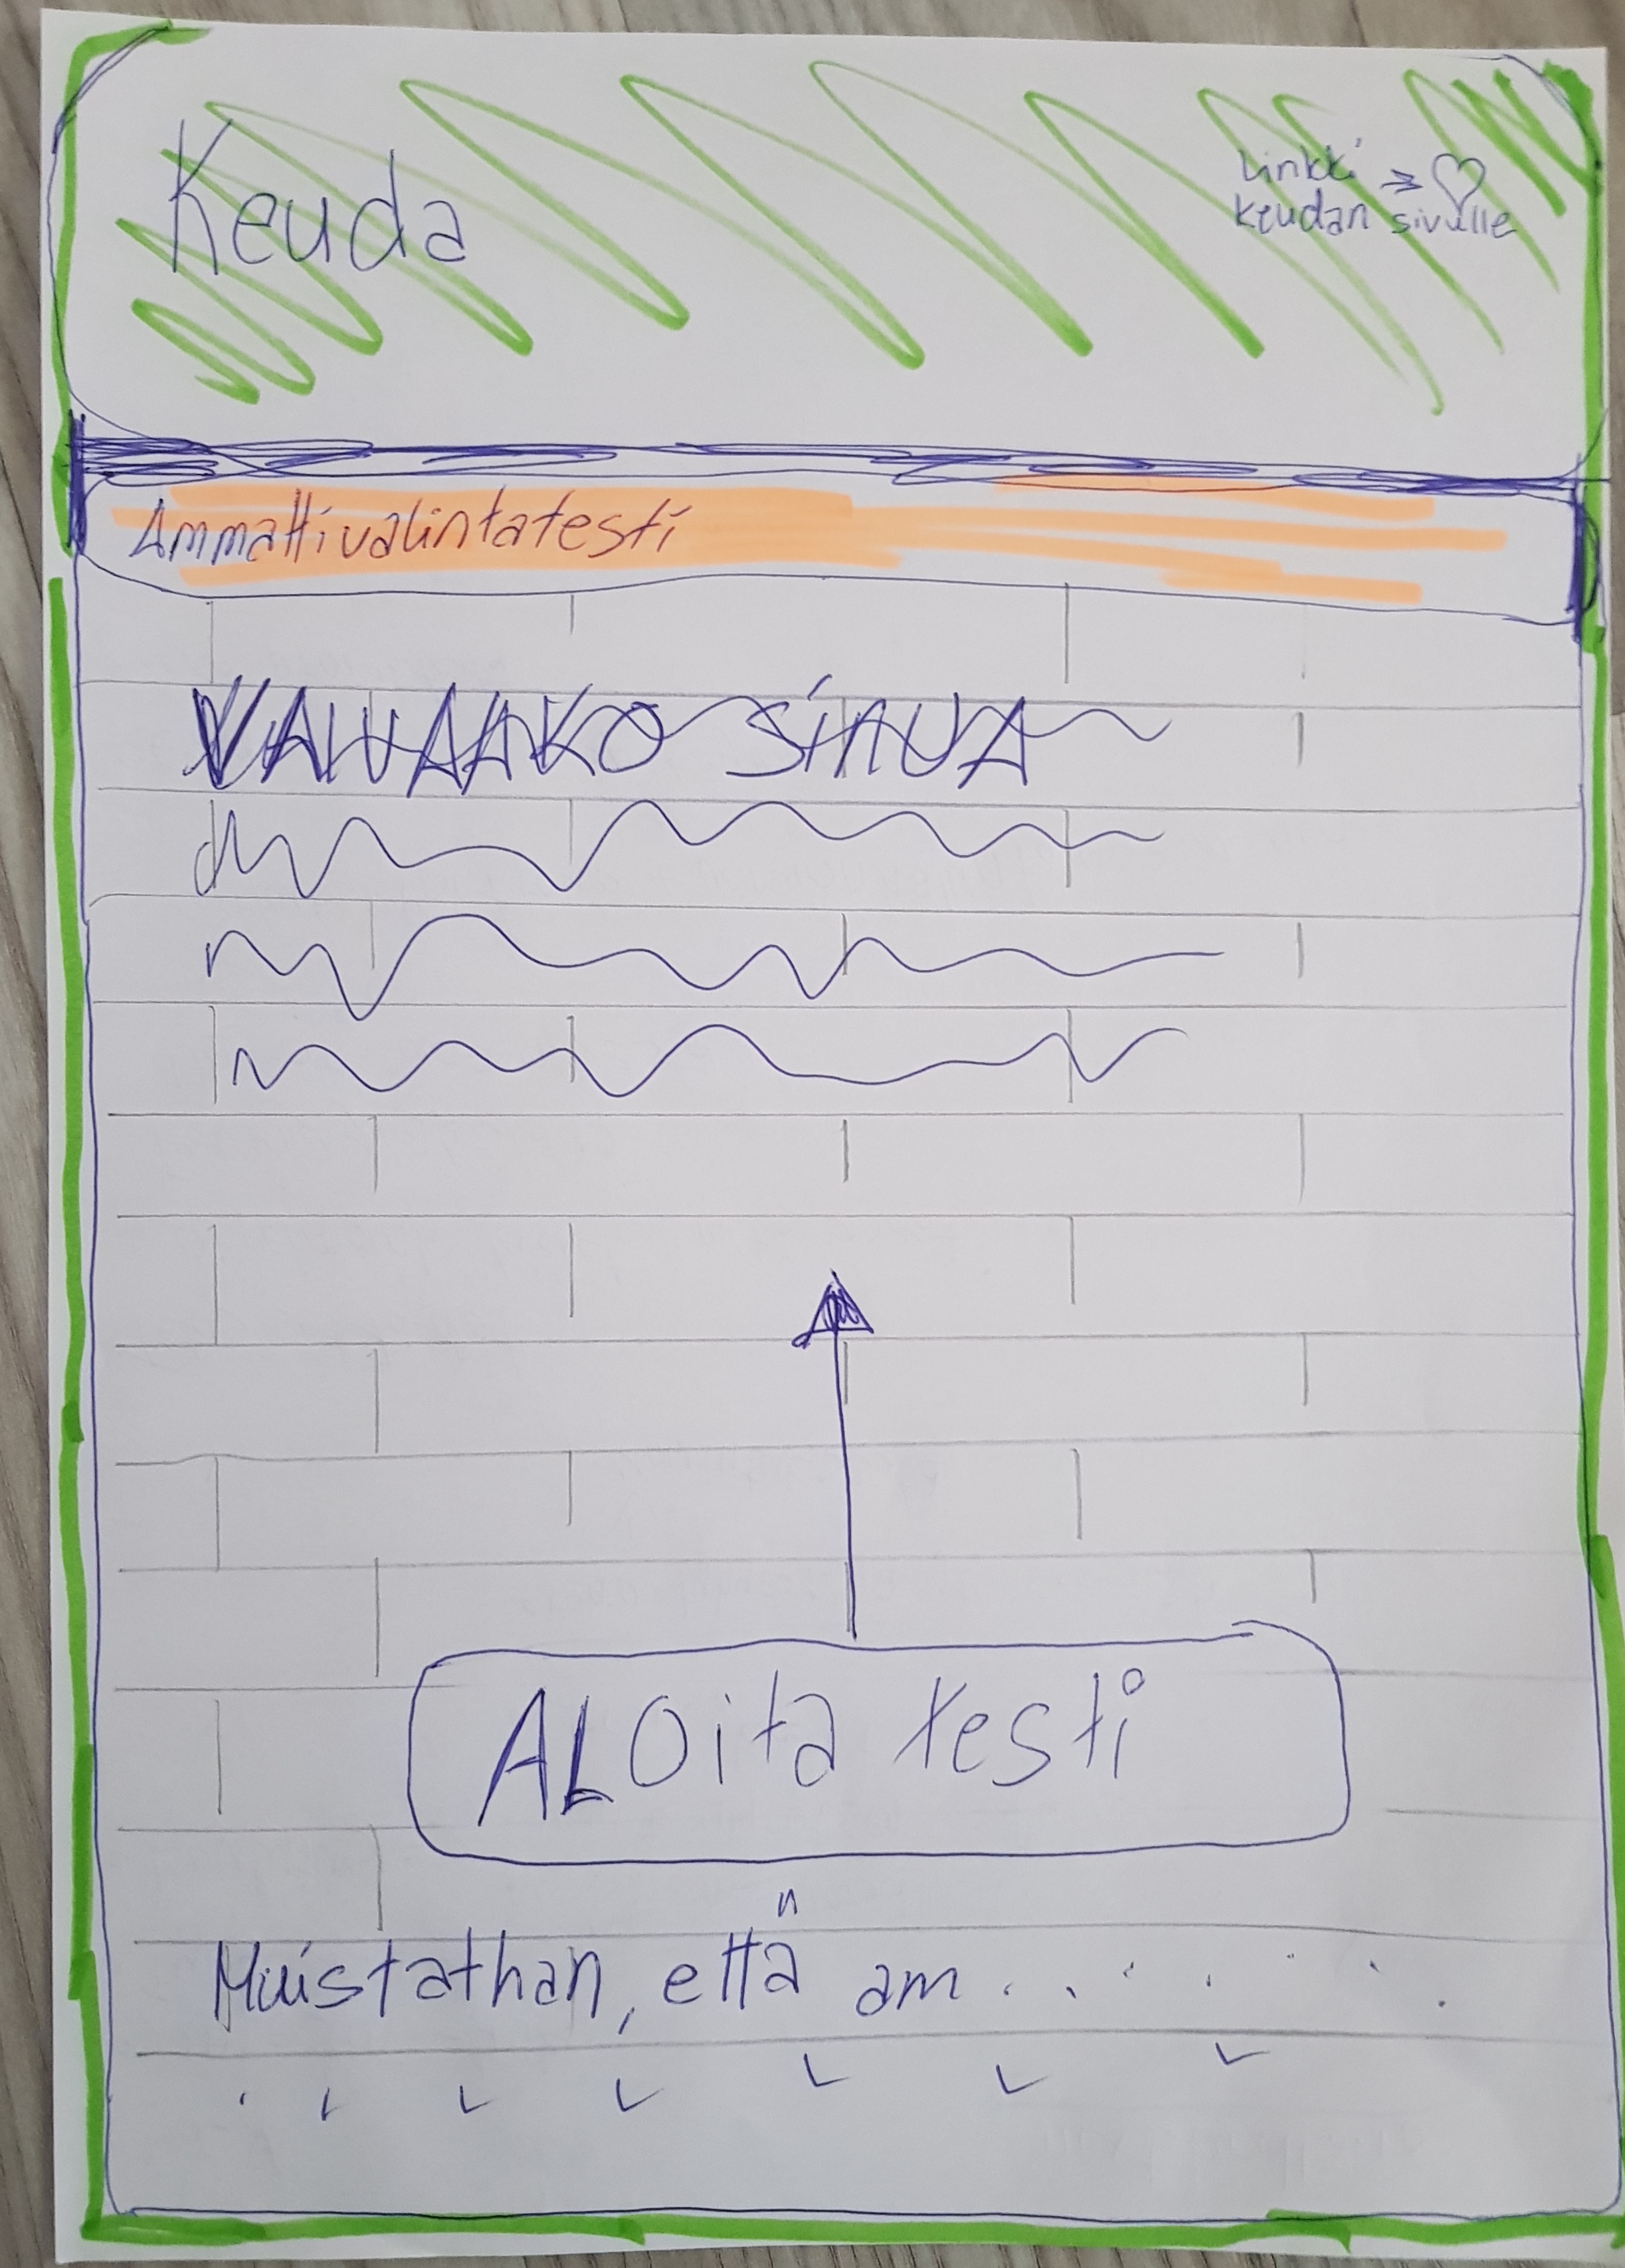 Keuda
Linkki => ♡
keudan sivulle
Ammattivalintatesti
SiNUA
ALOita testi
Muistathan, että am . . . . . . .